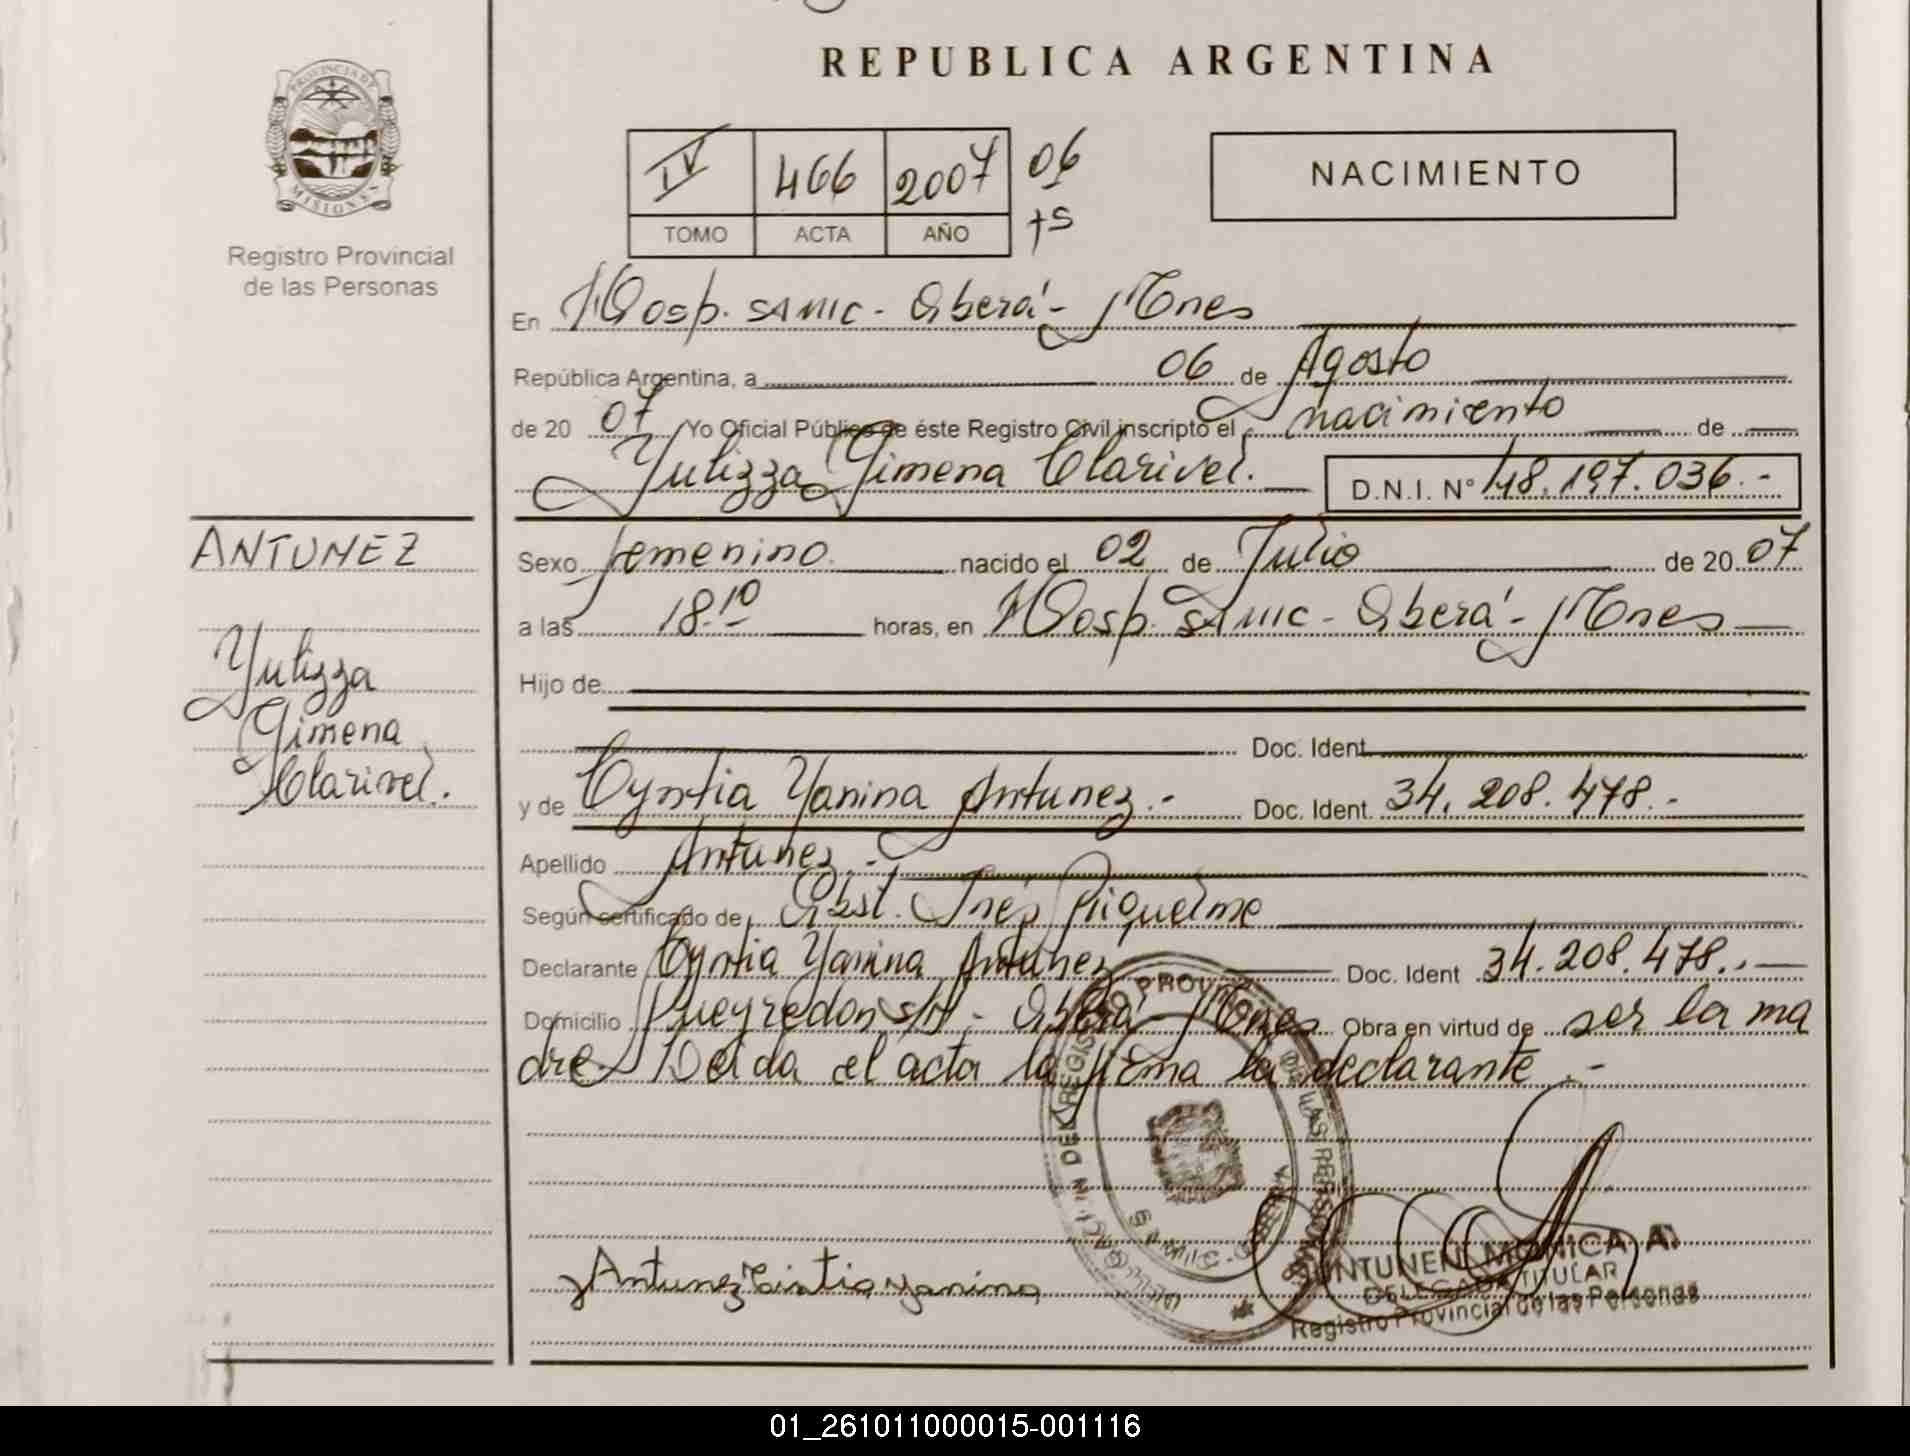 REPUBLICA ARGENTINA
PROVINCIA DE
MISIONES
Registro Provincial
de las Personas
IV 466 2007 06
TOMO ACTA AÑO
NACIMIENTO
En Hosp. SAMIC - Oberá - Mnes
República Argentina, a 06 de Agosto
de 2007 Yo Oficial Público de éste Registro Civil inscripto el nacimiento de
Yulizza Gimena Clarivel. D.N.I. N° 48.197.036.-
ANTUNEZ
Yulizza
Gimena
Clarivel.
Sexo femenino. nacido el 02 de Julio de 2007
a las 18.10 horas, en Hosp. SAMIC - Oberá - Mnes
Hijo de
Doc. Ident.
y de Cyntia Yanina Antunez.- Doc. Ident. 34.208.478.-
Apellido Antunez.-
Según certificado de Obst. Inés Riquelme
Declarante Cyntia Yanina Antunez Doc. Ident 34.208.478.-
Domicilio Pueyredon s/n - Oberá - Mnes Obra en virtud de ser la ma
dre. Leida el acta la firma la declarante.-
Antunez Cintia yanina
MONICA A.
DELEGADA TITULAR
Registro Provincial de las Personas
01_261011000015-001116